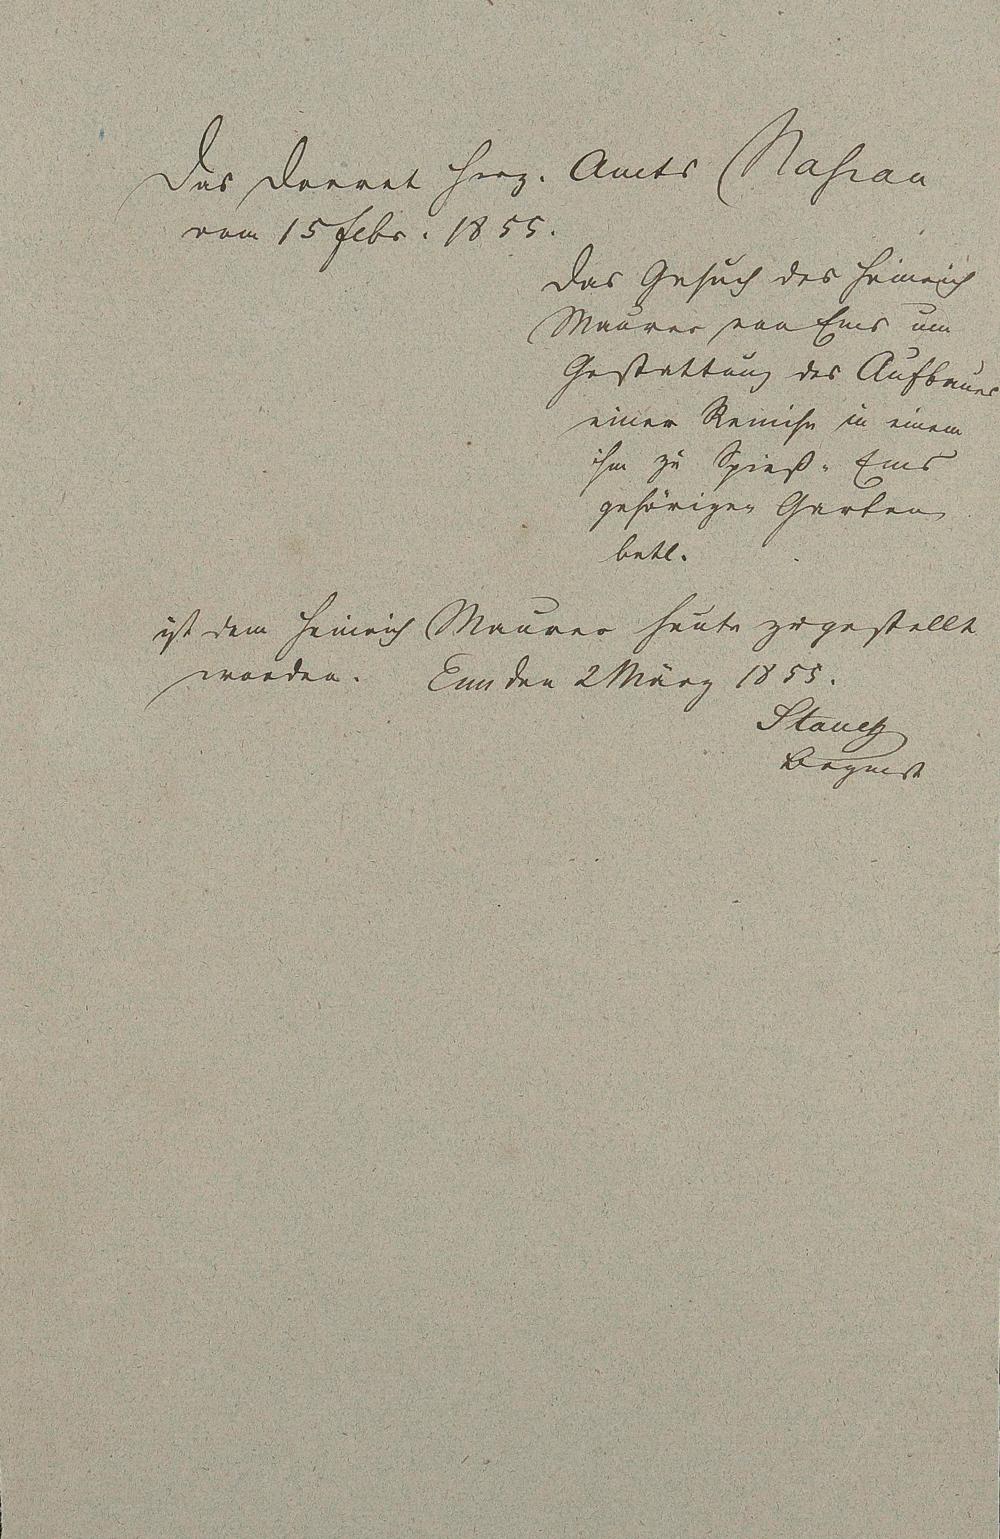 Das Decret Herz. Amts Nassau
vom 15 Febr. 1855.
Das Gesuch des Heinrich
Maurer von Ems um
Gestattung des Aufbaues
einer Remise in einem
ihm zu Spieß-Ems
gehörigen Garten
betr.
ist dem Heinrich Maurer heute zugestellt
worden. Ems den 2 März 1855.